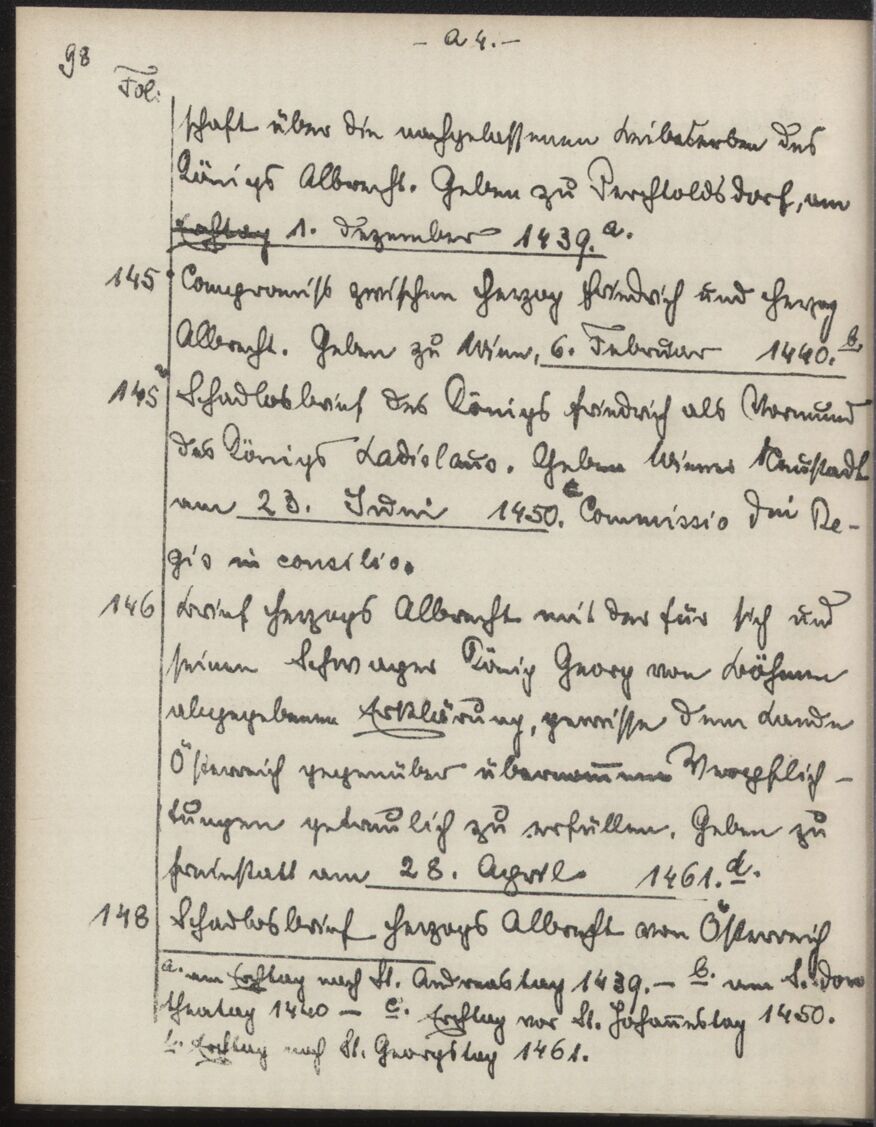 98
- A 4. -
Fol:
schaft über die nachgelassenen Leibeserben des
Königs Albrecht. Geben zu Perchtoldsdorf, am
Erchtag 1. Dezember 1439. a.
145 Compromiss zwischen Herzog Friedrich und Herzog
Albrecht. Geben zu Wien, 6. Februar 1440. b.
145 Schadlosbrief des Königs Friedrich als Vormund
des Königs Ladislaus. Geben Wiener Neustadt
am 23. Juni 1450. c Commissio dni Re-
gis in consilio.
146 Brief Herzogs Albrecht mit der für sich und
seinen Schwager König Georg von Böhmen
abgegebenen Erklärung, gewisse dem Lande
Österreich gegenüber übernom̅men Verpflich-
tungen getreulich zu erfüllen. Geben zu
Freinstatt am 28. April 1461. d.
148 Schadlosbrief Herzogs Albrecht von Österreich
a. am Erchtag nach St. Andreastag 1439. - b. am S. Doro
theatag 1440 - c. Erchtag vor St. Joham̅estag 1450.
Erchtag nach St. Georgstag 1461.